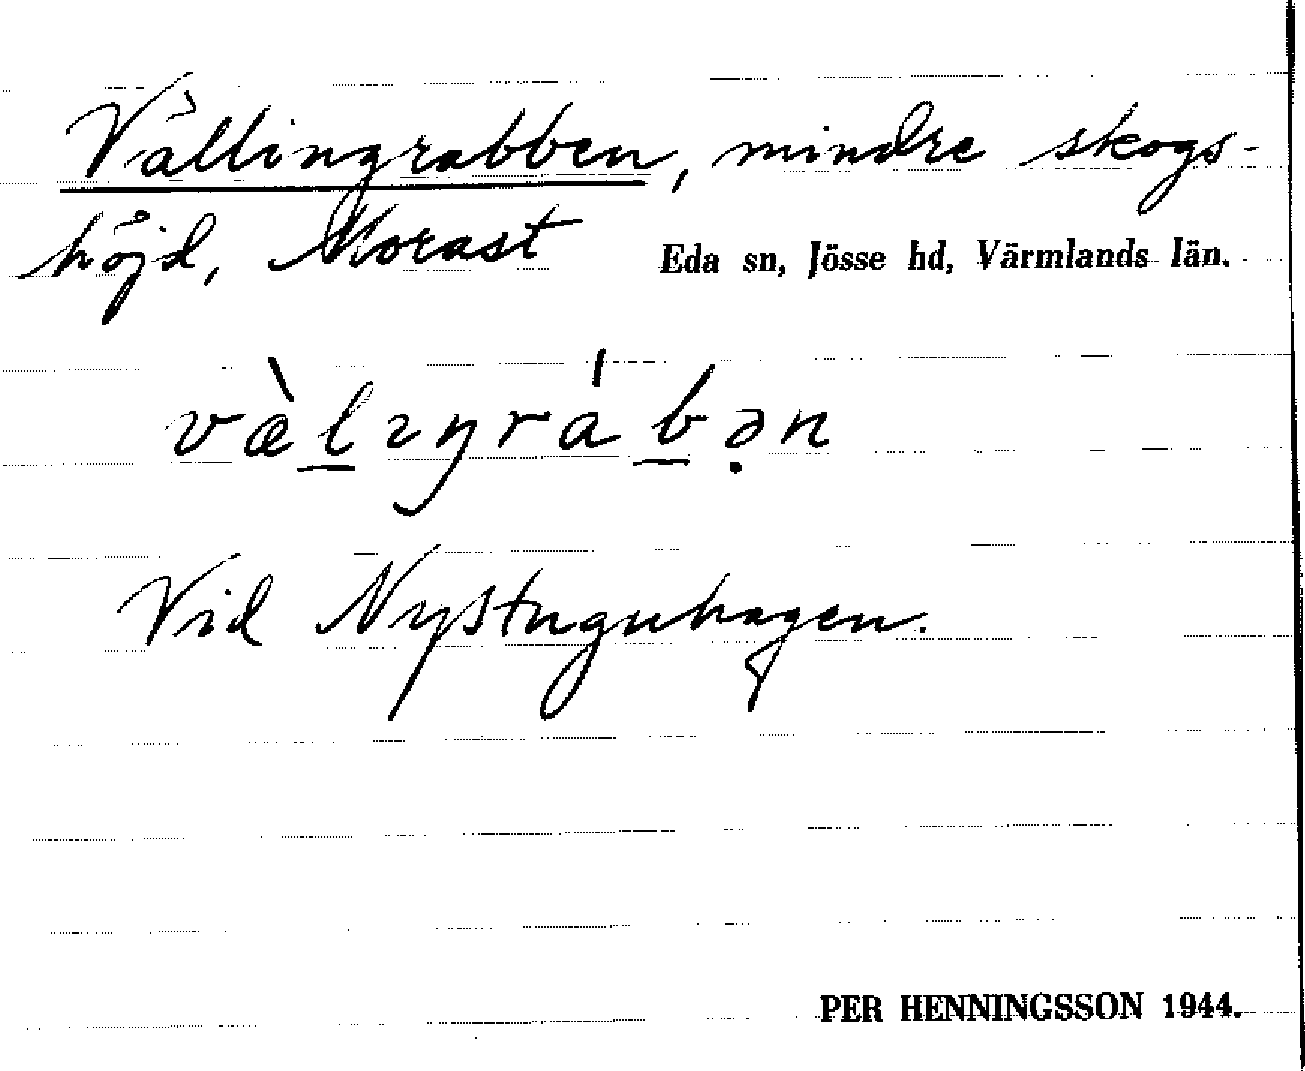 Vällingrabben, mindre skogs-
höjd, Morast Eda sn, Jösse hd, Värmlands län.
væ̀l̲ıŋráb̲ə̣n
Vid Nystuguhagen.
PER HENNINGSSON 1944.